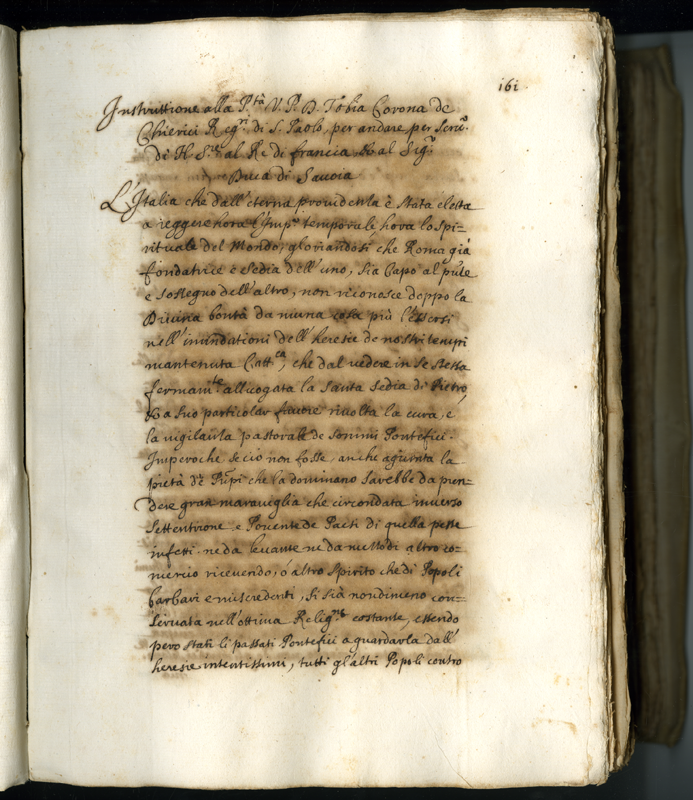 161
Instruttione alla P.tà V. P. D. Tobia Corona de
Chierici Reg.ri di S. Paolo, per andare per Seru.o
di N. S.re al Re di francia, & al Sig.r
Duca di Sauoia
L'Italia che dall'eterna prouidenza è stata eletta
a reggere hora l'Imp.o temporale, hora lo spi=
rituale del Mondo, gloriandosi che Roma già
fondatrice e sedia dell'uno, sia Capo al p̄nte
e sostegno dell'altro, non riconosce doppo la
Diuina bontà da niuna cosa più l'essersi
nell'inundationi dell'heresie de nostri tempi
mantenuta Catt.ca, che dal uedere in se stessa
fermam.te alluogata la Santa Sedia di Pietro,
& a suo particolar fauore riuolta la cura, e
la uigilanza pastorale de sommi Pontefici.
Imperoche se cio non fosse, anche agiunta la
pietà de Prn̄pi che la dominano sarebbe da pren=
dere gran marauiglia che circondata inuerso
Settentrione, e Ponente de Paesi di quella peste
infetti, ne da leuante ne da mezzodi altro co=
mercio riceuendo, ò altro spirito che di Popoli
barbari e miscredenti, si sia nondimeno con=
seruata nell'ottima Relig.ne costante, essendo
pero stati li passati Pontefici a guardarla dall'
heresie intentissimi, tutti gl'altri Popoli contro